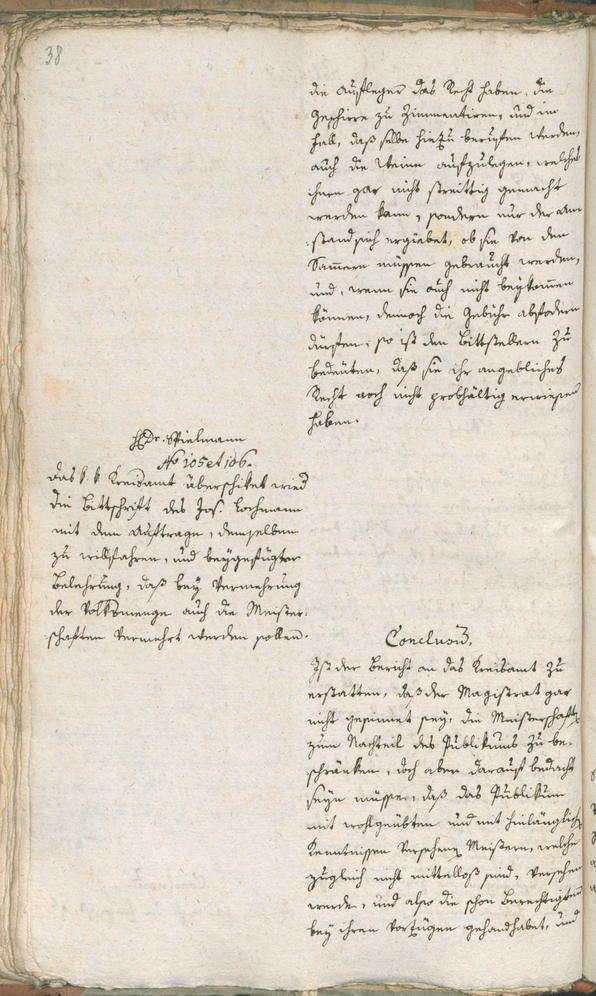 38
die Aufleger das Recht haben, die
Geschirre zu Zimmentiren, und im
fall, daß selbe hiezu beruffen werden,
auch die Weine aufzulegen, welches
ihnen gar nicht streittig gemacht
werden kann, sondern nur der An-
stand sich ergiebet, ob sie von den
müssen gebraucht werden,
und, wenn sie auch nicht beykommen
können, dennoch die Gebühr abfodern
dürfen; so ist den Bittstellern zu
bedeuten, daß sie ihr angebliches
Recht noch nicht probhältig erwiesen
haben.
Hr. Spielmann
No 105 et 106.
Das k. k. Kreisamt überschiket
die Bittschrift des Jos. Lochmann
mit dem Auftrage, demselben
zu willfahren, und beygefügter
Belehrung, daß bey Vermehrung
der Volksmenge auch die Meister-
schaften vermehrt werden sollen.
Conclusum.
Ist der Bericht an das Kreisamt zu
erstatten, daß der Magistrat gar
nicht gesinnet sey, die Meisterschaften
zum Nachteil des Publikums zu be-
schränken, doch aber darauf bedacht
seyn müsse, daß das Publikum
mit wohlgeübten und mit hinlänglichen
Kenntnissen versehenen Meistern, welche
zugleich nicht mittellos sind, versehen
werde, und also die schon Berechtigten
bey ihren Vorzügen gehandhabet, und